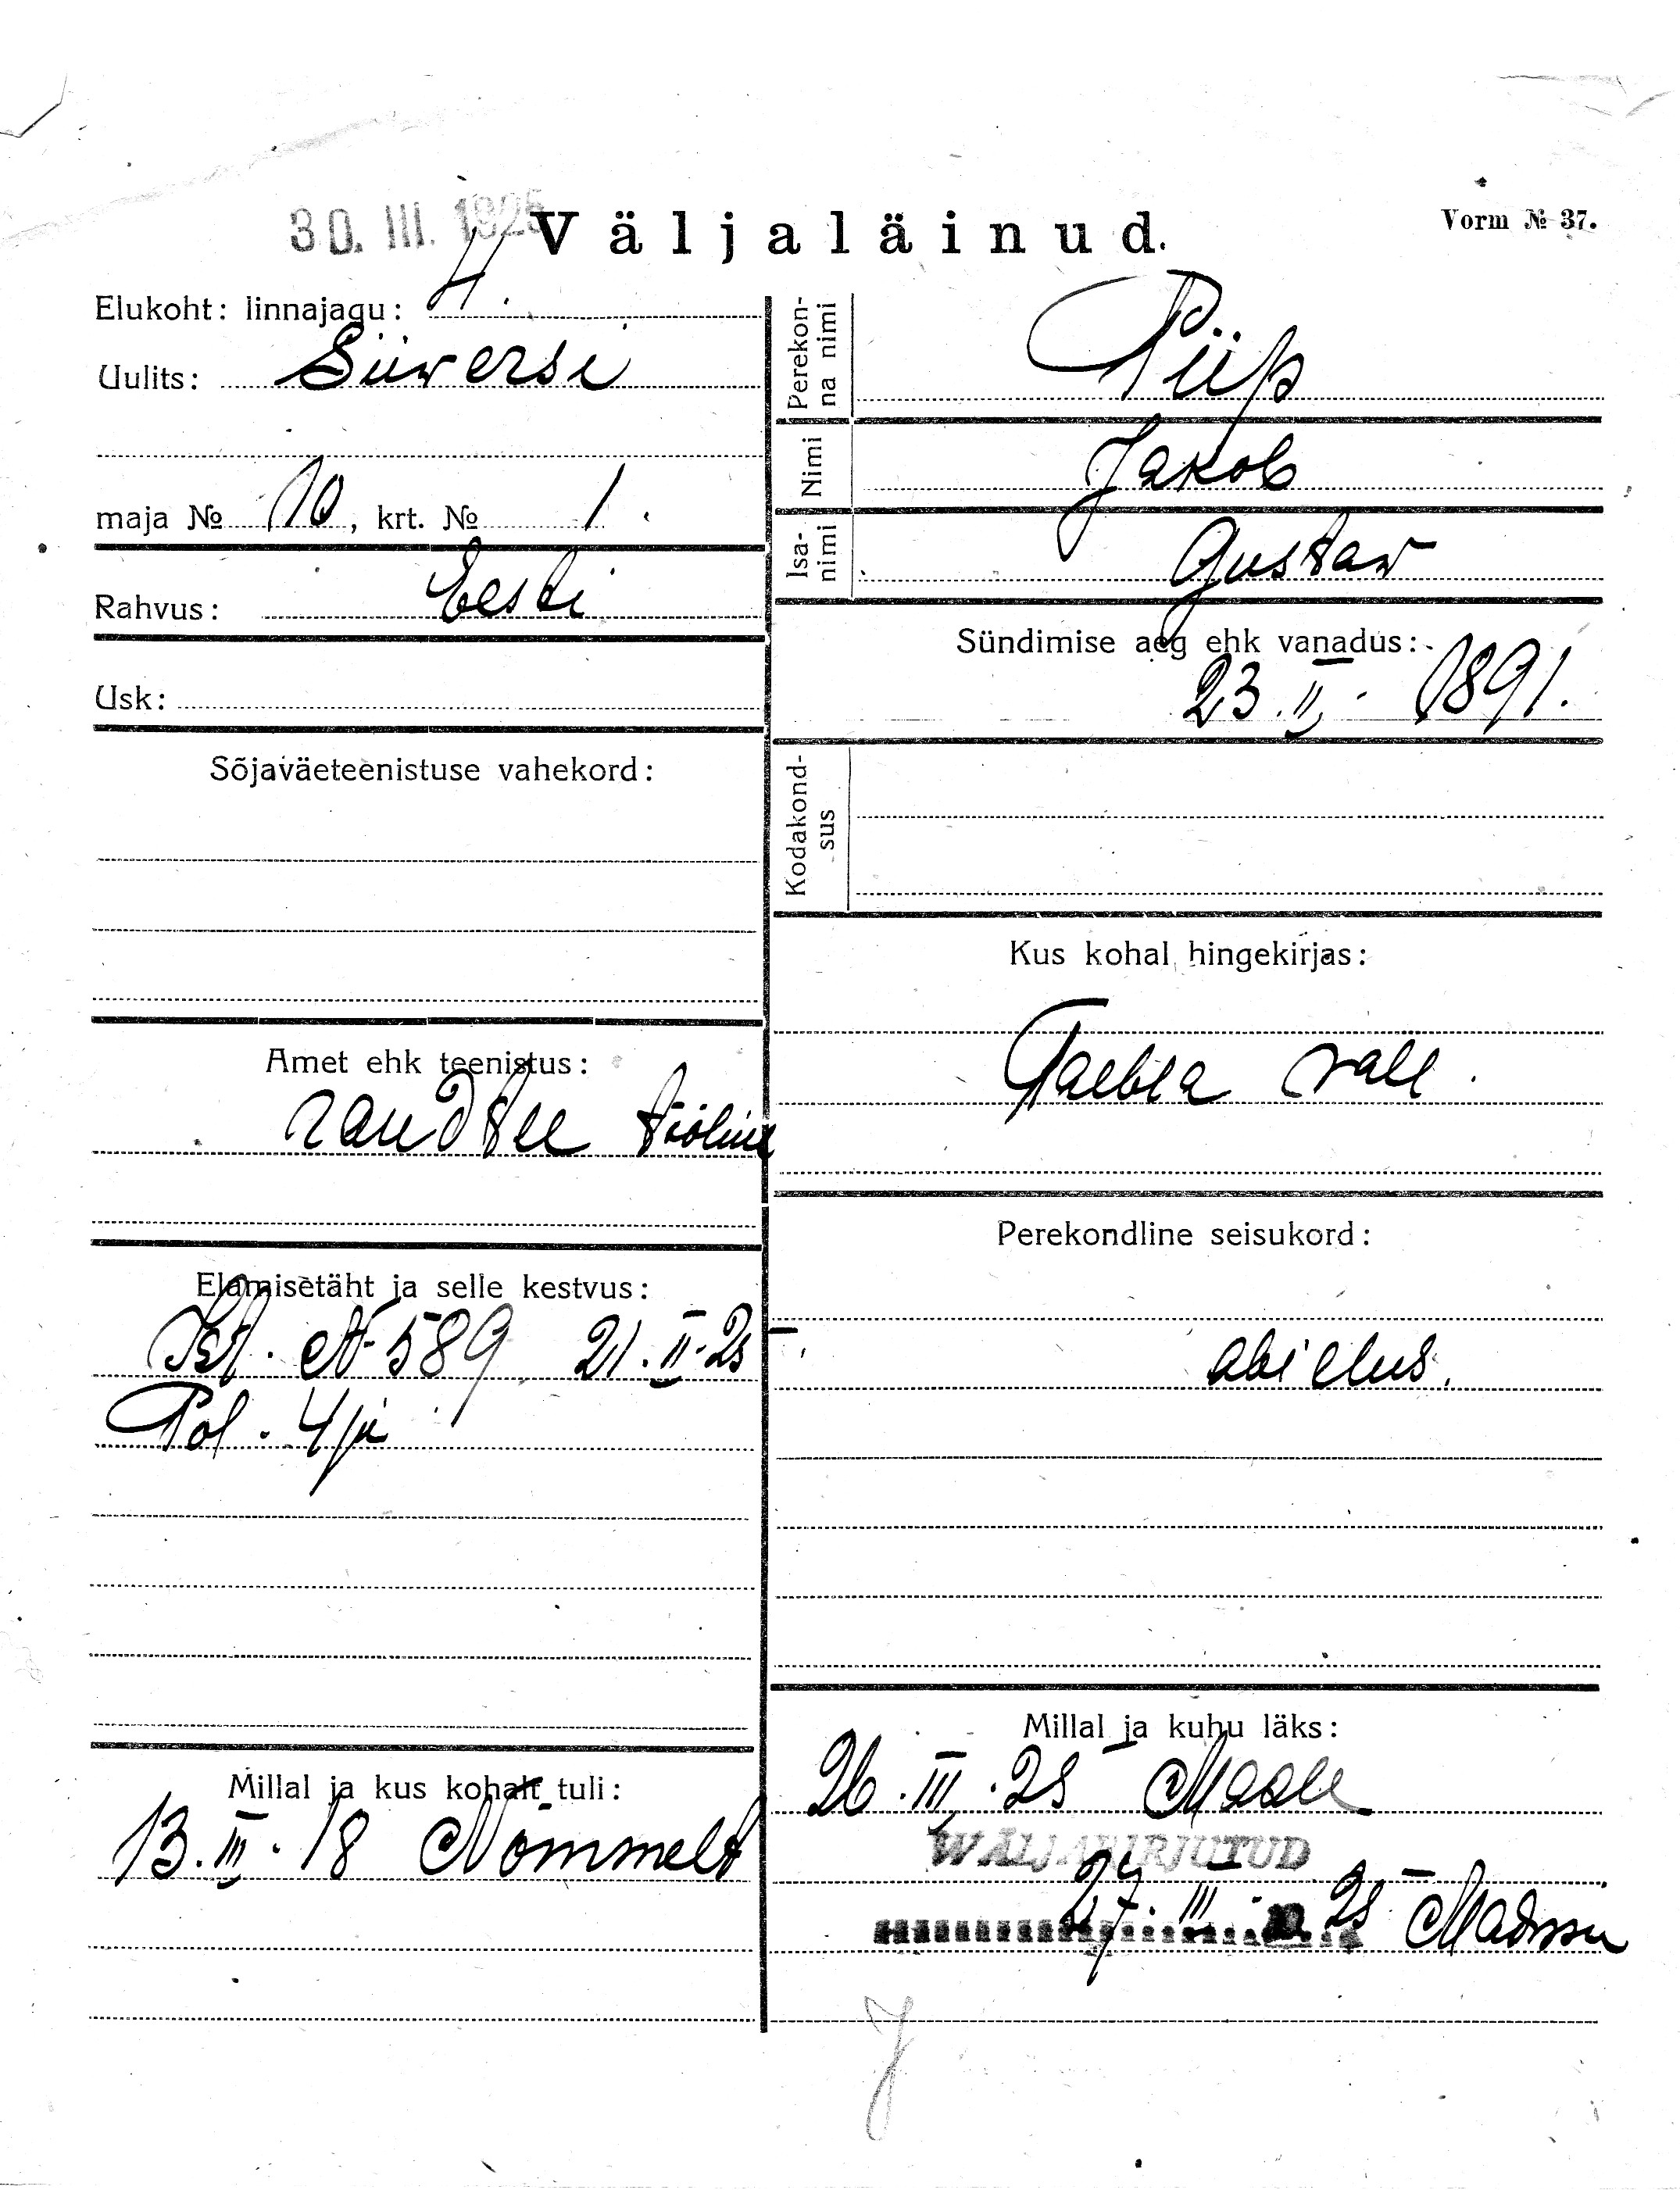 30. III. 1925
Väljaläinud.
Vorm № 37.
Elukoht: linnajagu: 4.
Uulits: Siiwersi
maja № 10, krt. № 1.
Rahvus: Eesti
Usk:
Sõjaväeteenistuse vahekord:
Amet ehk teenistus:
raudtee tööline
Elamisetäht ja selle kestvus:
Ist. № 589 21.II.25
Pol. 4 js
Millal ja kus kohalt tuli:
13.III.18 Nõmmelt
Perekonna nimi Piip
Nimi Jakob
Isanimi Gustaw
Sündimise aeg ehk vanadus:
23.II. 1891.
Kodakondsus
Kus kohal hingekirjas:
Taebla vall.
Perekondline seisukord:
abielus.
Millal ja kuhu läks:
26.III.25 Maale
WÄLJAKIRJUTUD
27.III.25